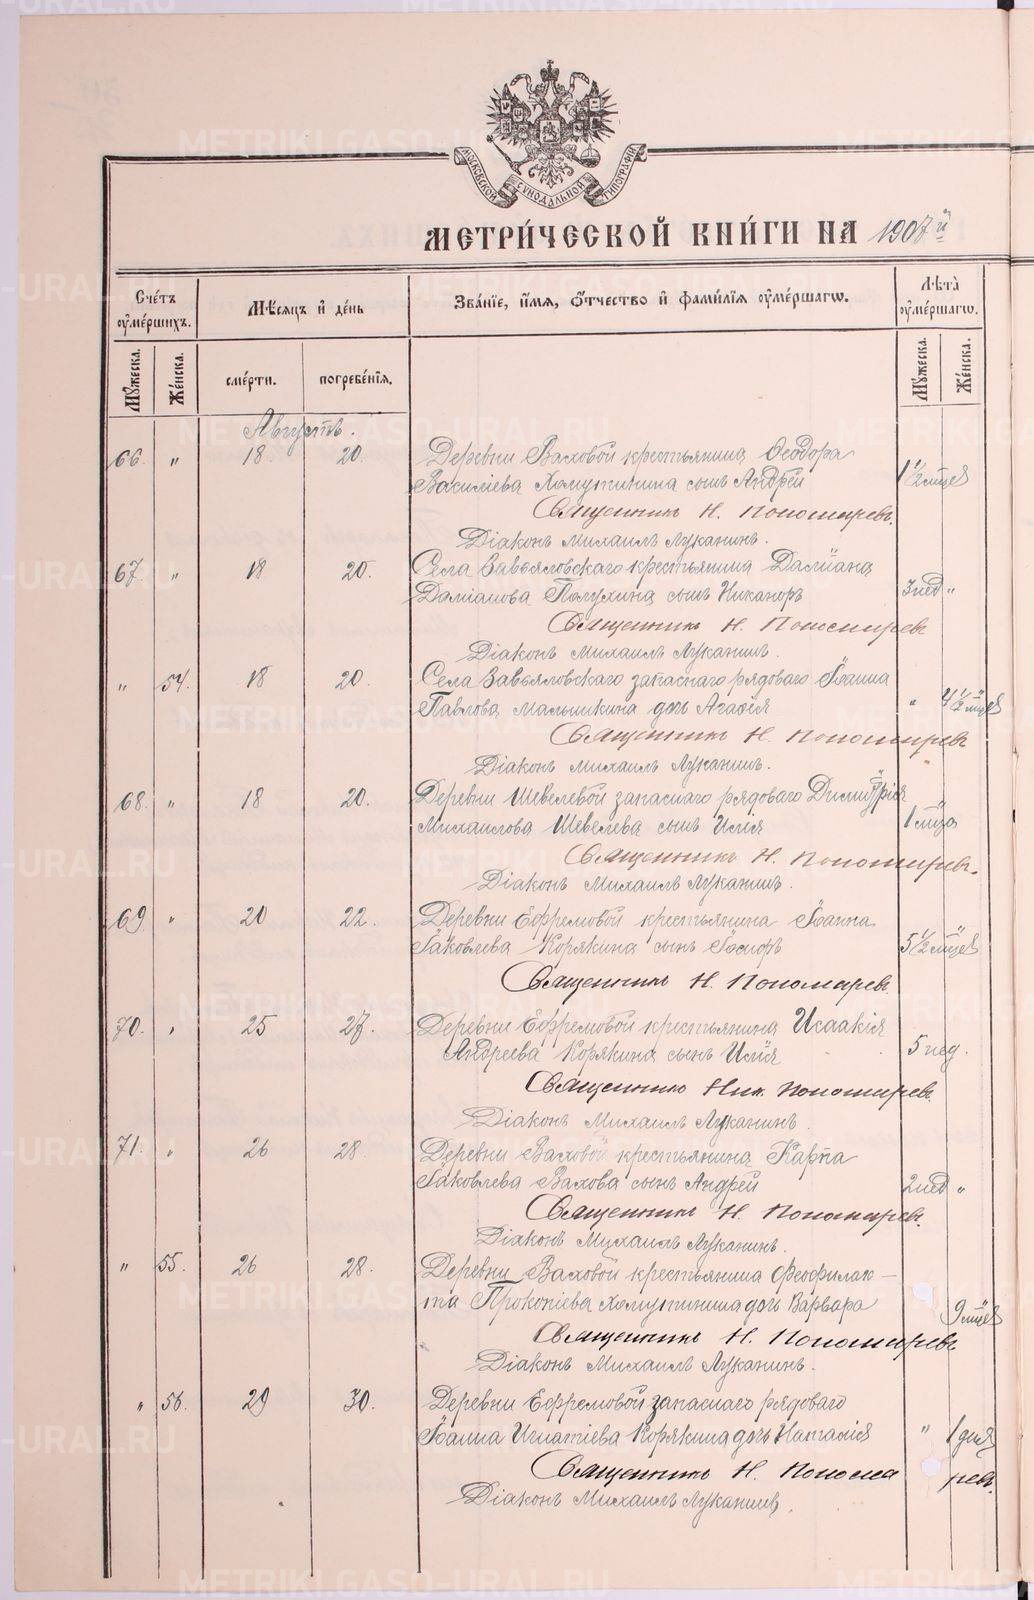 МОСКОВСКОЙ СУНОДАЛЬНОЙ ТИПОГРАФІИ
МЕТРИ́ЧЕСКОЙ КНИ́ГИ НА 1907 й
Сче́тъ оумершихъ.
Мѣсяцъ и день
Зва́нїе, и́мя, о́тчество и фами́лїя оуме́ршагѡ.
Лѣта̀ оумершагѡ.
Мужеска.
Же́нска.
сме́рти.
погребе́нїя.
Мужеска.
Же́нска.
Августъ.
66. " 18. 20. Деревни Ваховой крестьянина Ѳеодора
Василіева Хомутинина сынъ Андрей 1 1/2 мѣсяц
Священникъ Н. Пономаревъ.
Діаконъ Михаилъ Луканинъ.
67. " 18 20. Села Завьяловскаго крестьянина Даміана
Даміанова Полухина сынъ Никаноръ 3 нед "
Священникъ Н. Пономаревъ
Діаконъ Михаилъ Луканинъ.
" 54. 18 20. Села Завьяловскаго запаснаго рядоваго Іоанна
Павлова Малышкина дочь Агафія " 4 1/2 мѣсяц
Священникъ Н. Пономаревъ
Діаконъ Михаилъ Луканинъ.
68. " 18 20. Деревни Шевелевой запаснаго рядоваго Димитрія
Михаилова Шевелева сынъ Илія 1 мѣсяц
Священникъ Н. Пономаревъ.
Діаконъ Михаилъ Луканинъ.
69. " 20 22. Деревни Ефремовой крестьянина Іоанна
Іаковлева Корякина сынъ Іосифъ 5 1/2 мѣсяц
Священникъ Н. Пономаревъ
70. " 25 27. Деревни Ефремовой крестьянина Исаакія
Андреева Корякина сынъ Илія 5 нед.
Священникъ Ник. Пономаревъ.
Діаконъ Михаилъ Луканинъ.
71. " 26 28. Деревни Ваховой крестьянина Карпа
Іаковлева Вахова сынъ Андрей 2 нед "
Священникъ Н. Пономаревъ.
Діаконъ Михаилъ Луканинъ.
" 55. 26 28. Деревни Ваховой крестьянина Феофилак-
та Прокопіева Хомутинина дочь Варвара 9 мѣсяц
Священникъ Н. Пономаревъ
Діаконъ Михаилъ Луканинъ.
" 56. 29 30. Деревни Ефремовой запаснаго рядоваго
Іоанна Игнатіева Корякина дочь Наталія " 1 дня
Священникъ Н. Понома ревъ.
Діаконъ Михаилъ Луканинъ.
METRIKI.GASO-URAL.RU